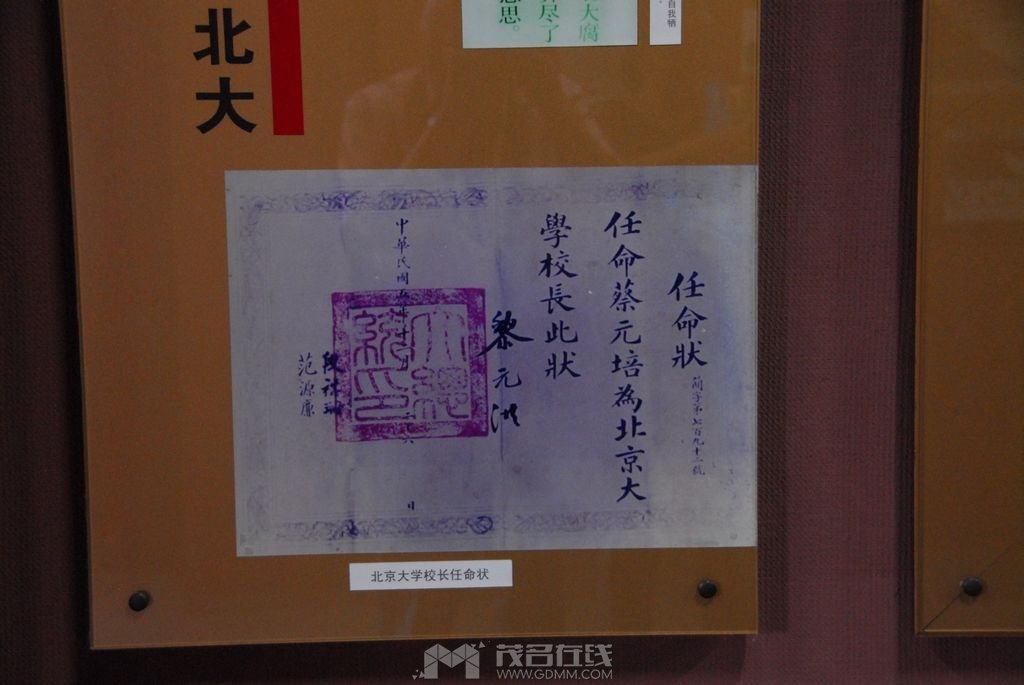 北大
大腐
尽了
思。
自我牺
任命狀
簡字第七百九十三號
任命蔡元培為北京大
學校長此狀
黎元洪
中華民國五年十二月二十六日
段祺瑞
范源廉
北京大学校长任命状
茂名在线
WWW.GDMM.COM